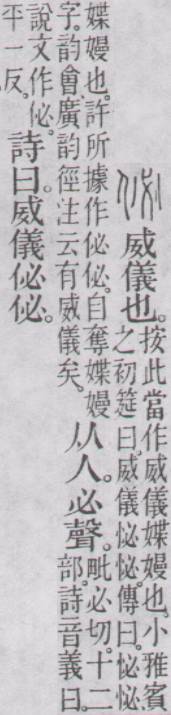 佖 威儀也。按此當作威儀媟嫚也。小雅賓之初筵曰。威儀怭怭。傳曰。怭怭
媟嫚也。許所據作佖佖。自奪媟嫚字。韵會廣韵徑注云有威儀矣。从人。必聲。毗必切。十二部。詩音義曰。
說文作佖。平一反。詩曰。威儀佖佖。